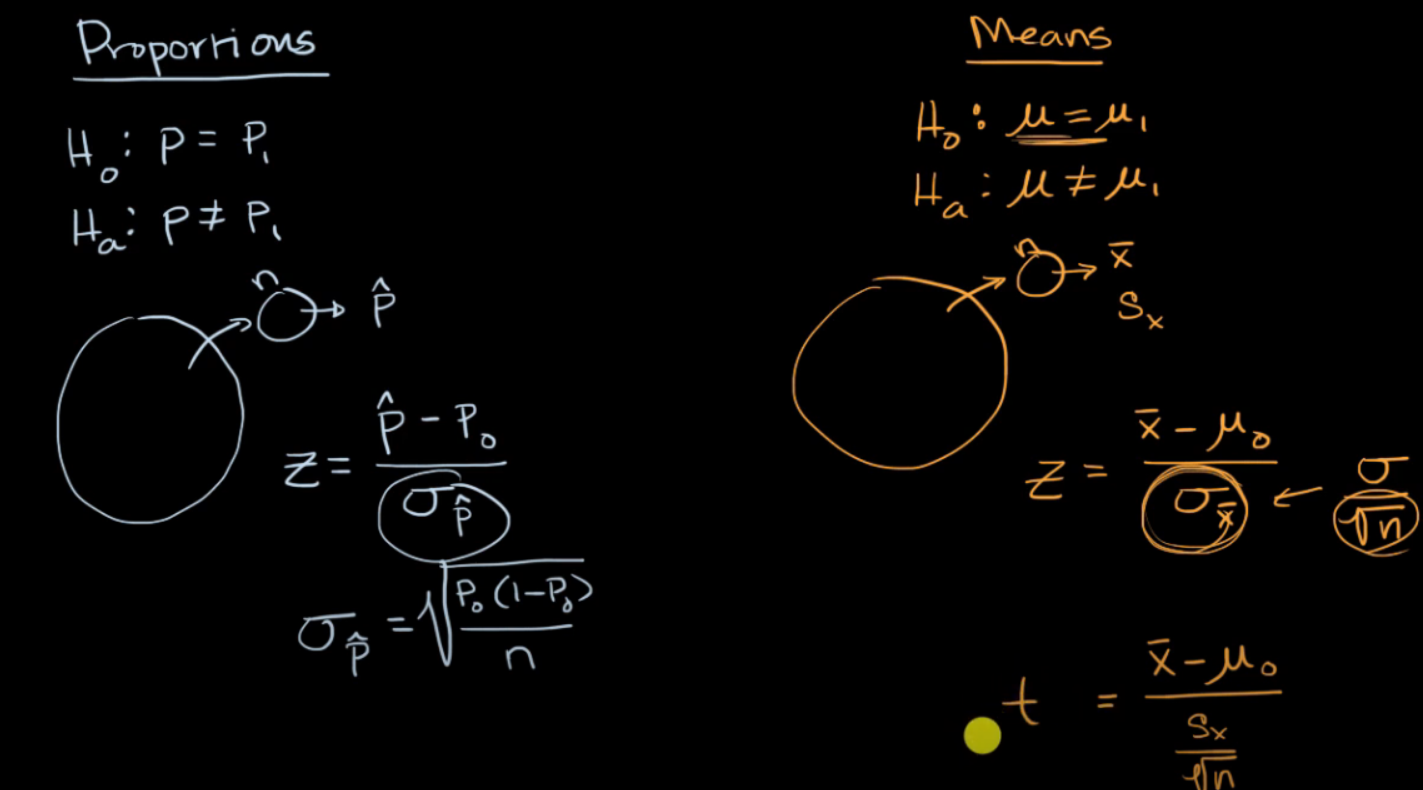 Proportions
H₀: P = P₁
Hₐ: P ≠ P₁
n
p̂
z = (p̂ - P₀) / σ_p̂
σ_p̂ = √(P₀(1-P₀) / n)
Means
H₀: μ = μ₁
Hₐ: μ ≠ μ₁
n
x̄
Sₓ
z = (x̄ - μ₀) / σ_x̄ ← σ / √n
t = (x̄ - μ₀) / (Sₓ / √n)